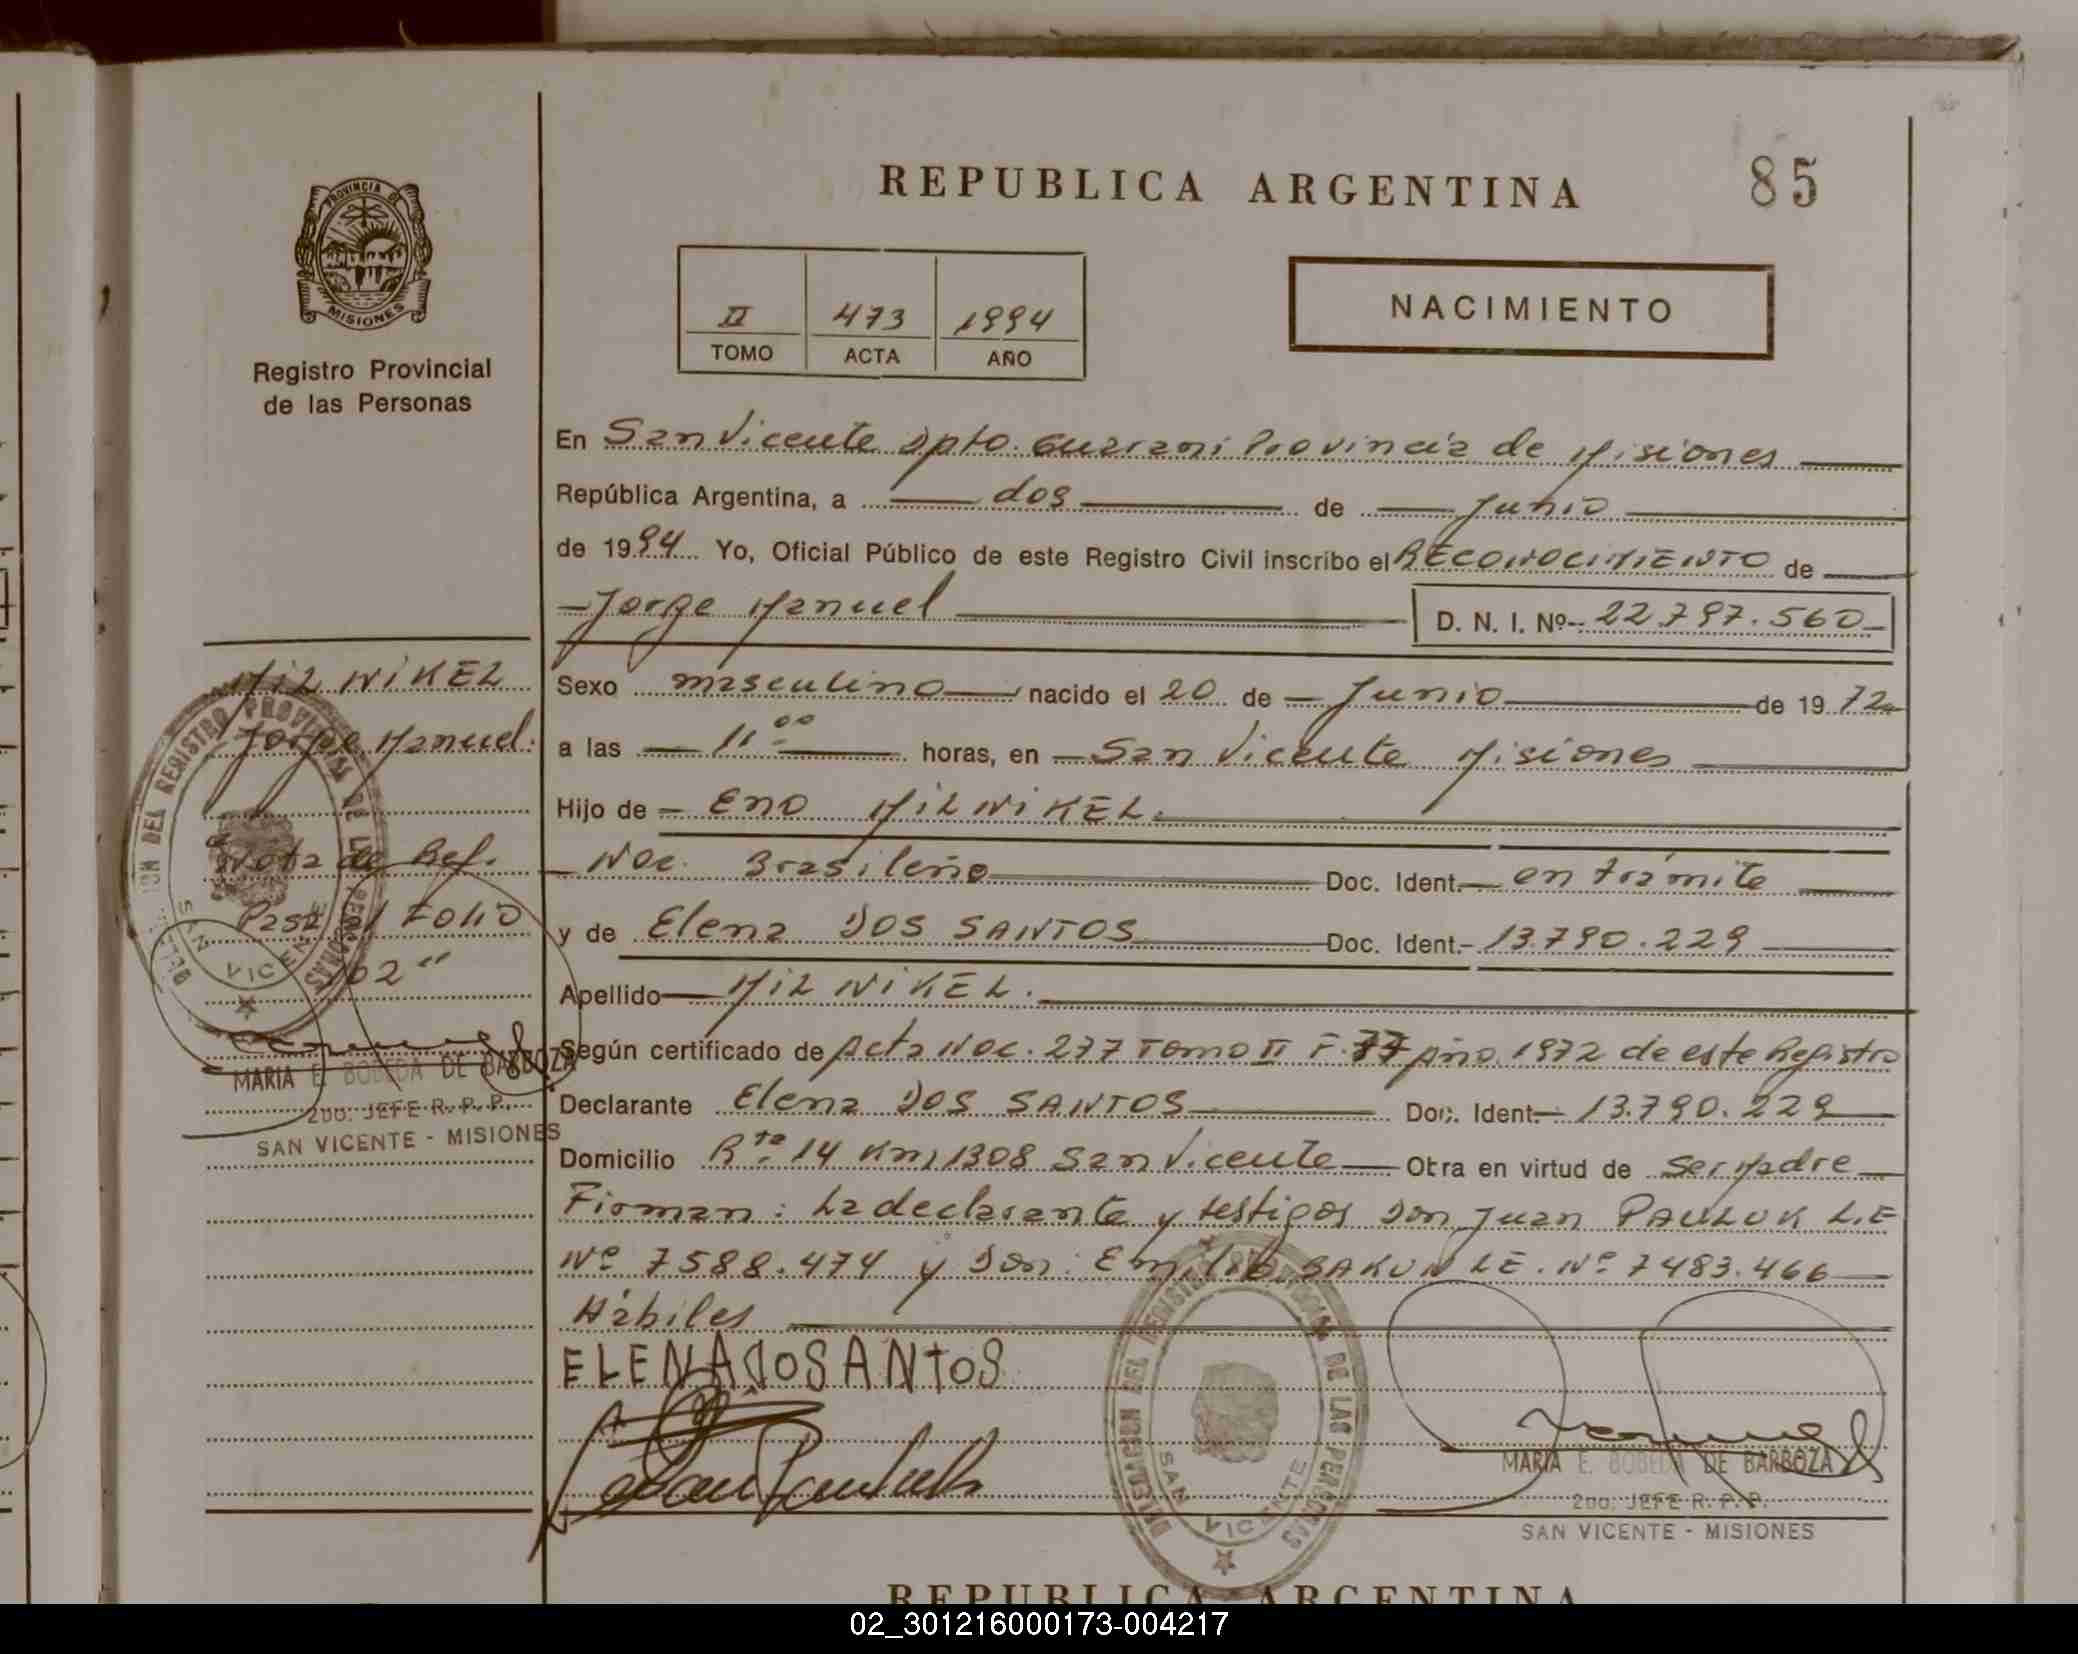 REPUBLICA ARGENTINA
85
PROVINCIA DE
MISIONES
Registro Provincial
de las Personas
II 473 1994
TOMO ACTA AÑO
NACIMIENTO
En San Vicente Dpto. Guarani Provincia de Misiones
República Argentina, a dos de Junio
de 1994 Yo, Oficial Público de este Registro Civil inscribo el RECONOCIMIENTO de
Jorge Manuel D. N. I. Nº 22.797.560
Sexo masculino nacido el 20 de Junio de 1972
a las 11:00 horas, en San Vicente Misiones
Hijo de Eno MILNIKEL.
Nac. Brasileño Doc. Ident. en trámite
y de Elena DOS SANTOS Doc. Ident. 13.790.229
Apellido MILNIKEL.
Según certificado de Acta Nac. 277 Tomo II F. 77 Año 1972 de este Registro
Declarante Elena DOS SANTOS Doc. Ident. 13.790.229
Domicilio Rta 14 Km, 1308 San Vicente Otra en virtud de ser Madre
Firman: La declarante y testigos Don Juan PAULUK L.E
Nº 7588.474 y Don: Emilio SAKUN LE. Nº 7483.466
Hábiles
ELENA DOSANTOS
MILNIKEL
Jorge Manuel.
Nota de Ref.
Pasa al Folio
102"
MARIA E. BOBEDA DE BARBOZA
2DO. JEFE R. P. P.
SAN VICENTE - MISIONES
DELEGACION DEL REGISTRO PROVINCIAL DE LAS PERSONAS
SAN VICENTE
DELEGACION DEL REGISTRO PROVINCIAL DE LAS PERSONAS
SAN VICENTE
MARIA E. BOBEDA DE BARBOZA
2DO. JEFE R. P. P.
SAN VICENTE - MISIONES
REPUBLICA ARGENTINA
02_301216000173-004217